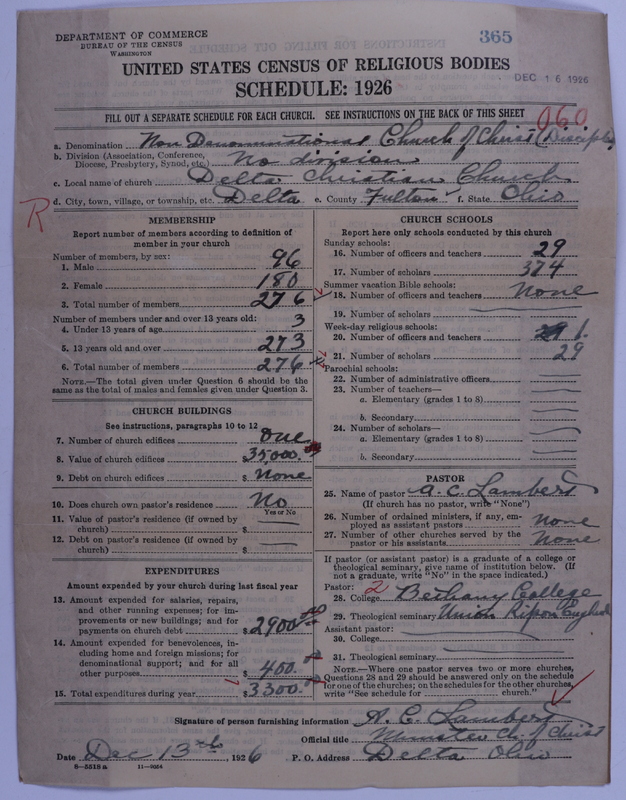 DEPARTMENT OF COMMERCE
BUREAU OF THE CENSUS
WASHINGTON
365
UNITED STATES CENSUS OF RELIGIOUS BODIES
DEC 16 1926
SCHEDULE: 1926
FILL OUT A SEPARATE SCHEDULE FOR EACH CHURCH. SEE INSTRUCTIONS ON THE BACK OF THIS SHEET
060
a. Denomination Non Denominational Church of Christ (Disciples)
b. Division (Association, Conference, Diocese, Presbytery, Synod, etc.) No division
c. Local name of church Delta Christian Church
d. City, town, village, or township, etc. Delta e. County Fulton f. State Ohio
R
MEMBERSHIP
Report number of members according to definition of
member in your church
Number of members, by sex:
1. Male 96
2. Female 180
3. Total number of members 276
Number of members under and over 13 years old:
4. Under 13 years of age 3
5. 13 years old and over 273
6. Total number of members 276
NOTE.—The total given under Question 6 should be
same as the total of males and females given under Question 3.
CHURCH BUILDINGS
See instructions, paragraphs 10 to 12
7. Number of church edifices One
8. Value of church edifices $35,000.
9. Debt on church edifices $ None
10. Does church own pastor's residence No
Yes or No
11. Value of pastor's residence (if owned by
church) $
12. Debt on pastor's residence (if owned by
church) $
EXPENDITURES
Amount expended by your church during last fiscal year
13. Amount expended for salaries, repairs,
and other running expenses; for im-
provements or new buildings; and for
payments on church debt $2900.00
14. Amount expended for benevolences, in-
cluding home and foreign missions; for
denominational support; and for all
other purposes $ 400.
15. Total expenditures during year $3300.
CHURCH SCHOOLS
Report here only schools conducted by this church
Sunday schools:
16. Number of officers and teachers 29
17. Number of scholars 374
Summer vacation Bible schools:
18. Number of officers and teachers None
19. Number of scholars
Week-day religious schools:
20. Number of officers and teachers 1.
21. Number of scholars 29
Parochial schools:
22. Number of administrative officers
23. Number of teachers—
a. Elementary (grades 1 to 8)
b. Secondary
24. Number of scholars—
a. Elementary (grades 1 to 8)
b. Secondary
PASTOR
25. Name of pastor A. C. Lambert
(If church has no pastor, write "None")
26. Number of ordained ministers, if any, em-
ployed as assistant pastors None
27. Number of other churches served by the
pastor or his assistants None
If pastor (or assistant pastor) is a graduate of a college or
theological seminary, give name of institution below. (If
not a graduate, write "No" in the space indicated.)
Pastor: 2
28. College Bethany College
29. Theological seminary Union Ripon England
Assistant pastor:
30. College
31. Theological seminary
NOTE.—Where one pastor serves two or more churches,
Questions 28 and 29 should be answered only on the schedule
for one of the churches; on the schedules for the other churches,
write "See schedule for church."
Signature of person furnishing information A. C. Lambert
Official title Minister Ch. of Christ
Date Dec 13th, 1926 P. O. Address Delta Ohio
8-5518a 11-9054